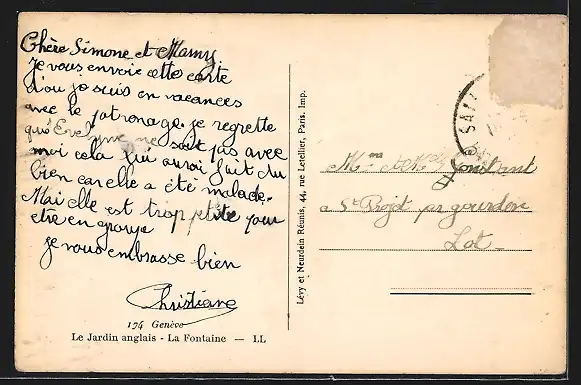 Chère Simone et Mamy
Je vous envoie cette carte
d'ou je suis en vacances
avec le patronage je regrette
que Evelyne ne soit pas avec
moi cela lui auroi fait du
bien car elle a été malade.
Mai elle est trop petite pour
etre en groupe
je vous embrasse bien
Christiane
194 Genève
Le Jardin anglais - La Fontaine — LL
Lévy et Neurdein Réunis, 44, rue Letellier, Paris, Imp.
Constant
a St Projet par gourdon
Lot